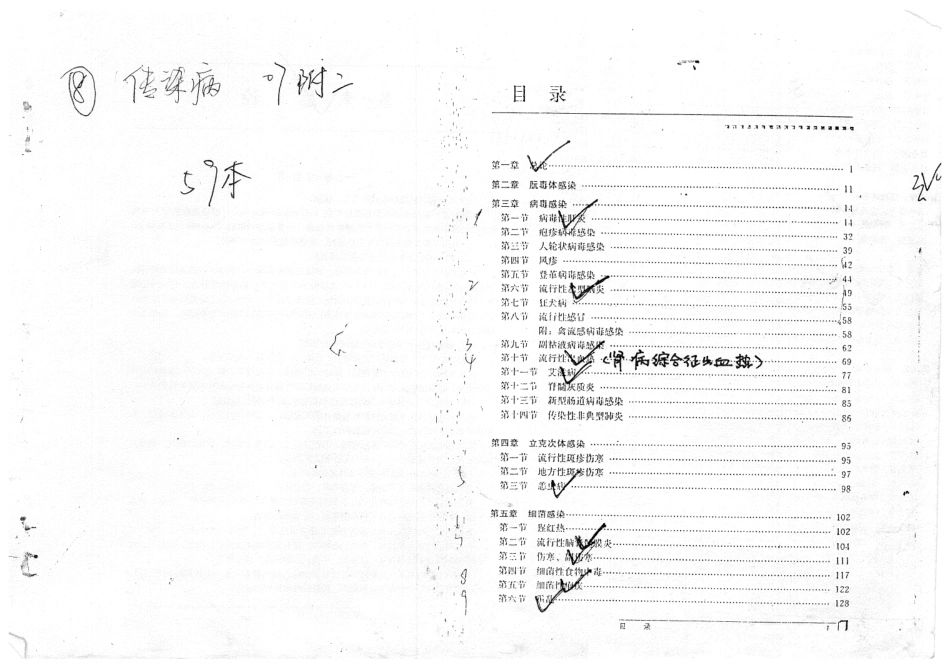 ⑧ 传染病 07附二
59本
目 录
第一章 总论 1
第二章 朊毒体感染 11
第三章 病毒感染 14
1 第一节 病毒性肝炎 14
第二节 疱疹病毒感染 32
第三节 人轮状病毒感染 39
第四节 风疹 42
第五节 登革病毒感染 44
2 第六节 流行性乙型脑炎 49
第七节 狂犬病 55
第八节 流行性感冒 58
附：禽流感病毒感染 58
3 第九节 副粘液病毒感染 62
4 第十节 流行性出血热 (肾病综合征出血热) 69
第十一节 艾滋病 77
第十二节 脊髓灰质炎 81
第十三节 新型肠道病毒感染 85
第十四节 传染性非典型肺炎 86
第四章 立克次体感染 95
第一节 流行性斑疹伤寒 95
第二节 地方性斑疹伤寒 97
5 第三节 恙虫病 98
第五章 细菌感染 102
第一节 猩红热 102
第二节 流行性脑脊髓膜炎 104
第三节 伤寒、副伤寒 111
8 第四节 细菌性食物中毒 117
9 第五节 细菌性痢疾 122
第六节 霍乱 128
目 录 1